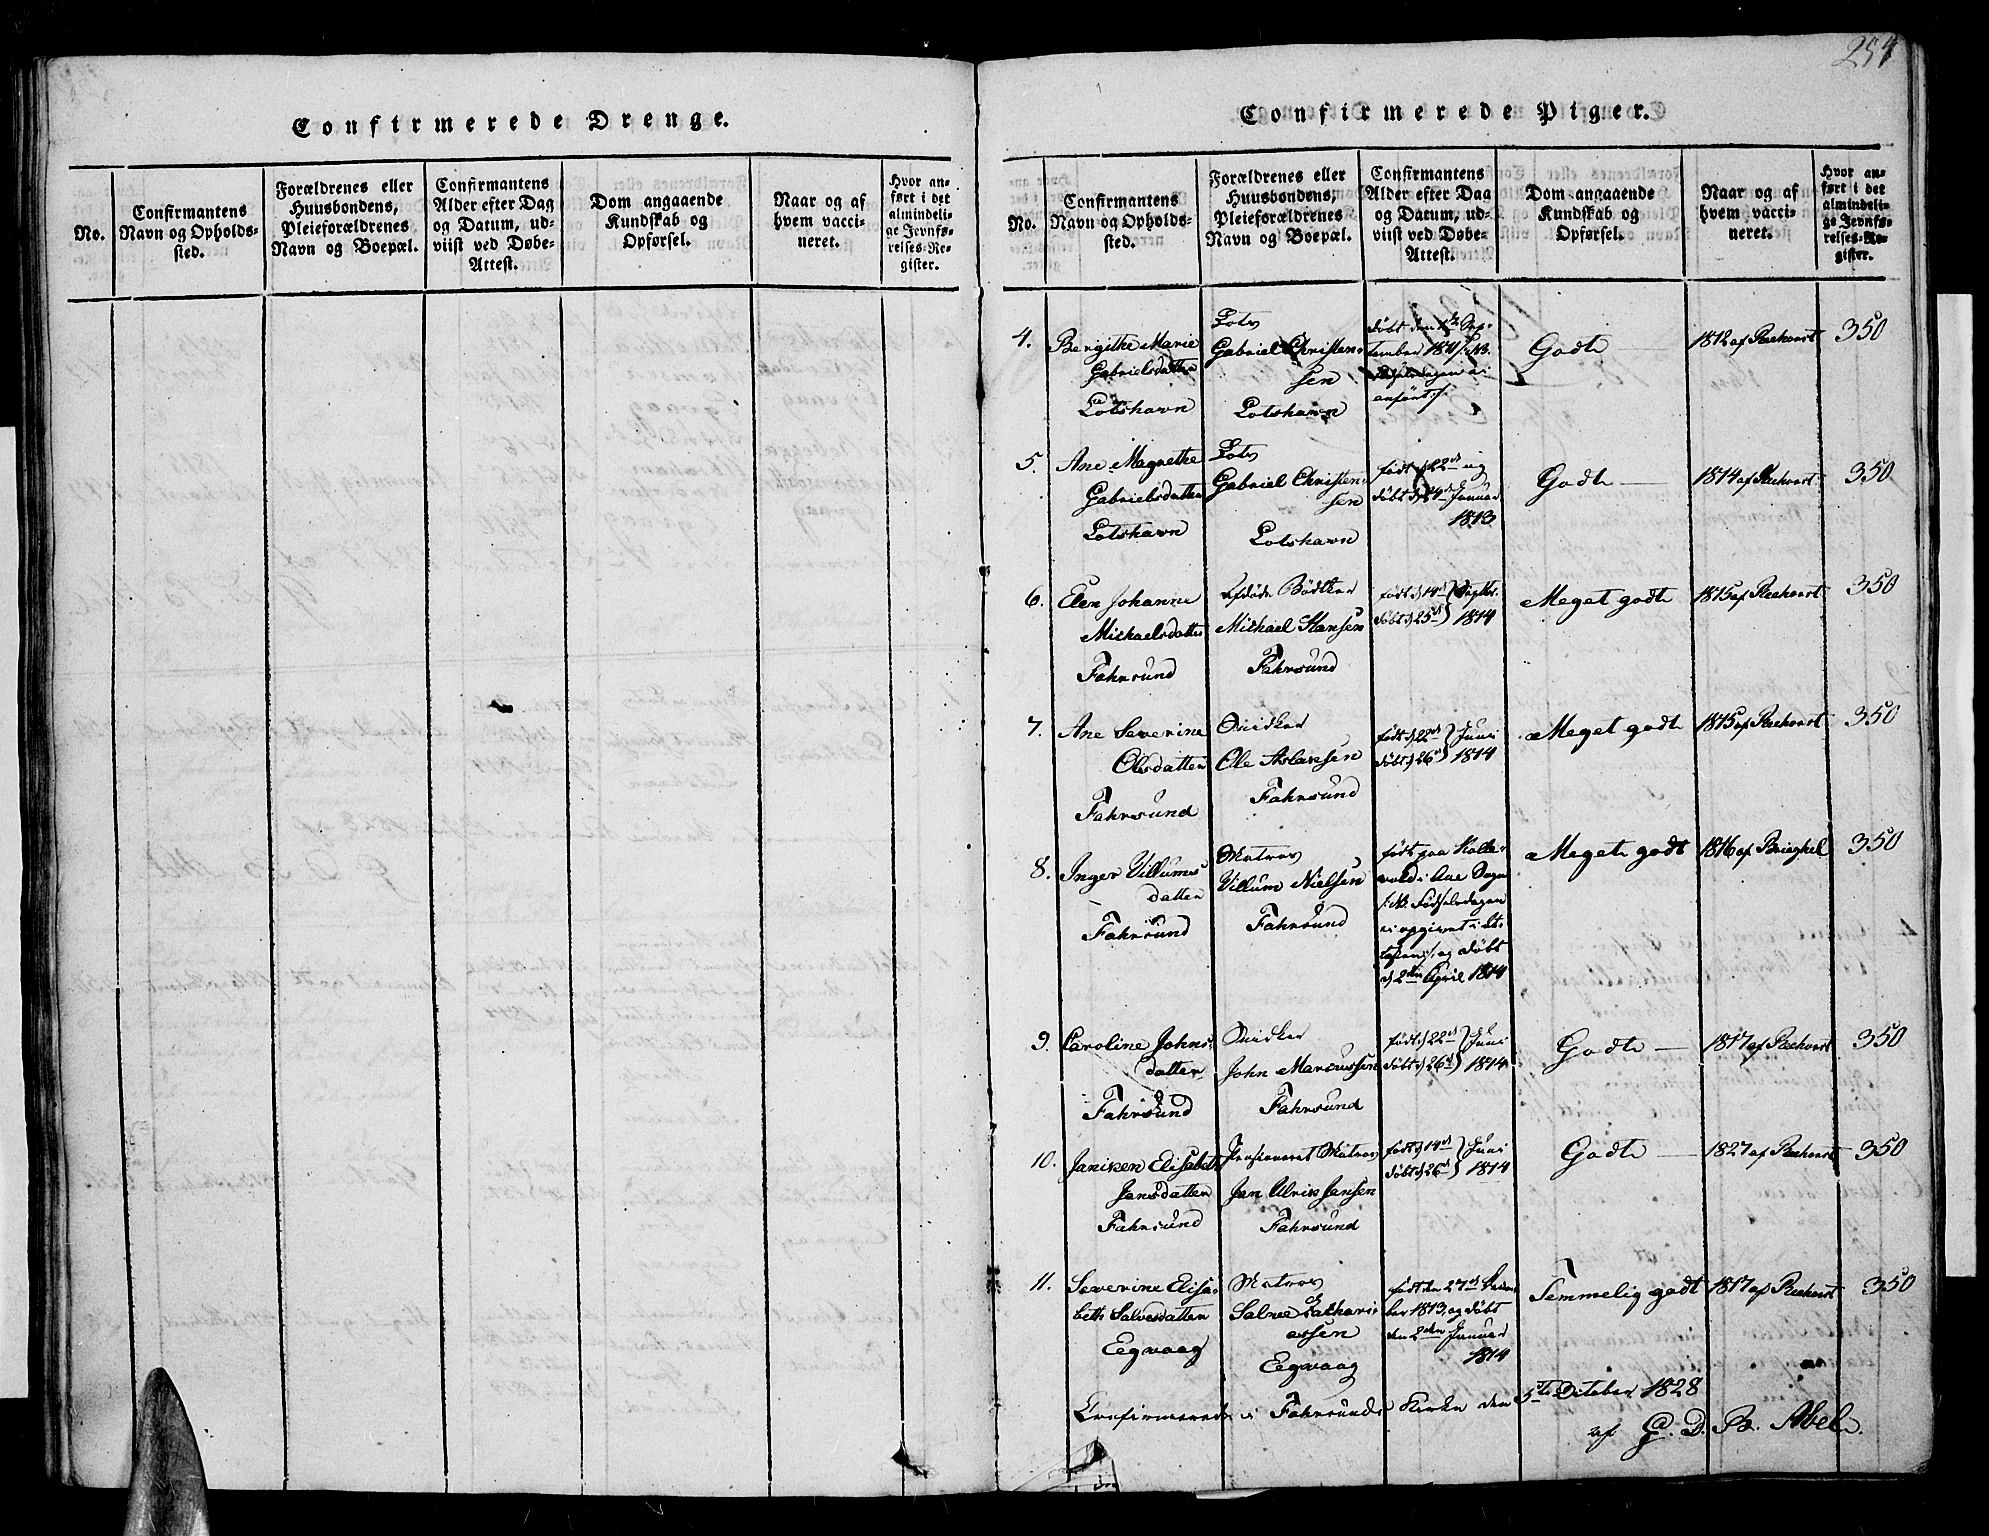 254
Confirmerede Drenge.
No.
Confirmantens
Navn og Opholds-
sted.
Forældrenes eller
Huusbondens,
Pleieforældrenes
Navn og Boepæl.
Confirmantens
Alder efter Dag
og Datum, ud-
viist ved Døbe-
Attest.
Dom angaaende
Kundskab og
Opførsel.
Naar og af
hvem vacci-
neret.
Hvor an-
ført i det
almindeli-
ge Jevnfø-
relses-Re-
gister.
Confirmerede Piger.
No.
Confirmantens
Navn og Opholds-
sted.
Forældrenes eller
Huusbondens,
Pleieforældrenes
Navn og Boepæl.
Confirmantens
Alder efter Dag
og Datum, ud-
viist ved Døbe-
Attest.
Dom angaaende
Kundskab og
Opførsel.
Naar og af
hvem vacci-
neret.
Hvor an-
ført i det
almindeli-
ge Jevnfø-
relses-Re-
gister.
4.
Bergithe Marie
Gabrielsdatter
Lotshavn
Lots
Gabriel Christen-
sen
Lotshavn
døbt den Sep-
tember 1811 /:NB.
anført:/
Godt
1812 af Reehorst
350
5.
Ane Magrethe
Gabrielsdatter
Lotshavn
Lots
Gabriel Christen-
sen
Lotshavn
født d 22de og
døbt d 24de Januar
1813
Godt
1814 af Reehorst
350
6.
Elen Johanne
Michaelsdatter
Fahrsund
Afdøde Bødker
Michael Hansen
Fahrsund
født d 14de Septbr.
døbt d 25de 1814
Meget godt
1815 af Reehorst
350
7.
Ane Severine
Olsdatter
Fahrsund
Snidker
Ole Aslansen
Fahrsund
født d 22de Juni
døbt d 26de 1814
Meget godt
1815 af Reehorst
350
8.
Inger Villums
datter
Fahrsund
Matros
Villum Nielsen
Fahrsund
født paa Holle-
vold i Aae Sogn
/:NB. Fødselsdagen
ei opgivet i At-
testen:/, og døbt
d 2den April 1814
Meget godt
1816 af Brieghel
350
9.
Caroline Johns-
datter
Fahrsund
Snidker
John Marcussen
Fahrsund
født d 22de Juni
døbt d 26de 1814
Godt
1817 af Reehorst
350
10.
Janiken Elisabeth
Jansdatter
Fahrsund
Pensioneret Matros
Jan Ulrik Jansen
Fahrsund
født d 14de Juni
døbt d 26de 1814
Godt
1827 af Reehorst
350
11.
Severine Elisa-
beth Salvesdatter
Eegvaag
Matros
Salve Zachari-
assen
Eegvaag
født den 27de Decem-
ber 1813, og døbt
den 2den Januar
1814
Temmelig godt
1817 af Reehorst
350
Confirmerede i Fahrsunds Kirke den 5te October 1828
af G. D. B. Abel.